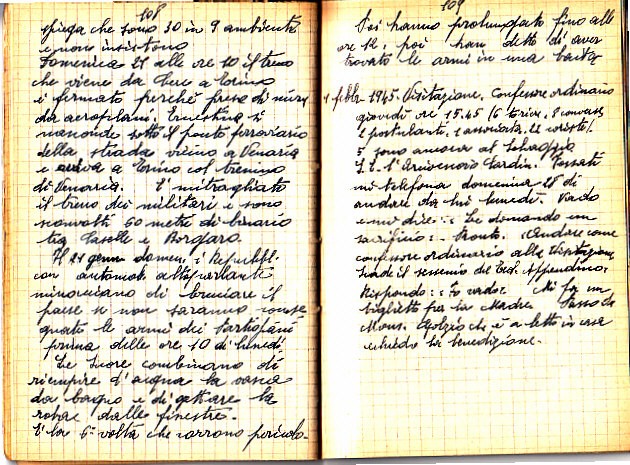 108
spiega che sono 30 in 9 ambienti
e non insistono
Domenica 21 alle ore 10 il treno
che viene da Cere a Torino
è fermato perchè preso di mira
da aeroplani. Ernestina si
nasconde sotto il ponte ferroviario
della strada vicino a Venaria
e arriva a Torino col trenino
di Venaria. È mitragliato
il treno dei militari e sono
sconvolti 60 metri di binario
tra Caselle e Borgaro.
Il 21 genn domen i Repubbl.
con automob. altoparlante
minacciano di bruciare il
paese se non saranno conse
gnate le armi dei Partigiani
prima delle ore 10 di lunedì
Le Suore combinano di
riempire d'acqua la vasca
da bagno e di gettare la
roba dalle finestre.
È la 6ª volta che corrono pericolo.
109
Poi hanno prolungato fino alle
ore 12, poi han detto di aver
trovato le armi in una
1 febbr 1945. Visitazione. Confessore ordinario
giovedì ore 15.45 16 coriste, 8 converse
2 postulanti, 1 associata, 22
5 sono ancora al Selvaggio
S.E. l'Arcivescovo Cardin. Fossati
mi telefona domenica 28 di
andare da lui lunedì. Vado
e mi dice: Le domando un
sacrificio: Pronto. Andare come
confessore ordinario alla Visitazione
scade il sessennio del Teol. Appendino.
Rispondo: Io vado. Mi fa un
biglietto per la Madre. Passo da
Mons. che è a letto in casa
e chiedo la benedizione.